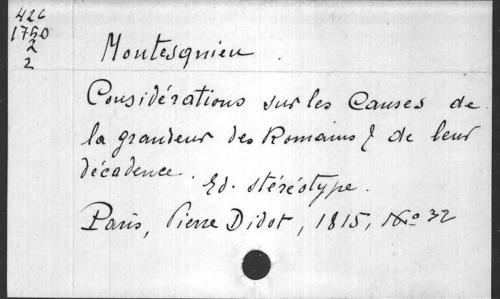 426
1750
2
2
Montesquieu.
Considérations sur les Causes de
la grandeur des Romains & de leur
décadence.
Ed. stéréotype.
Paris, Pierre Didot, 1815, No 32